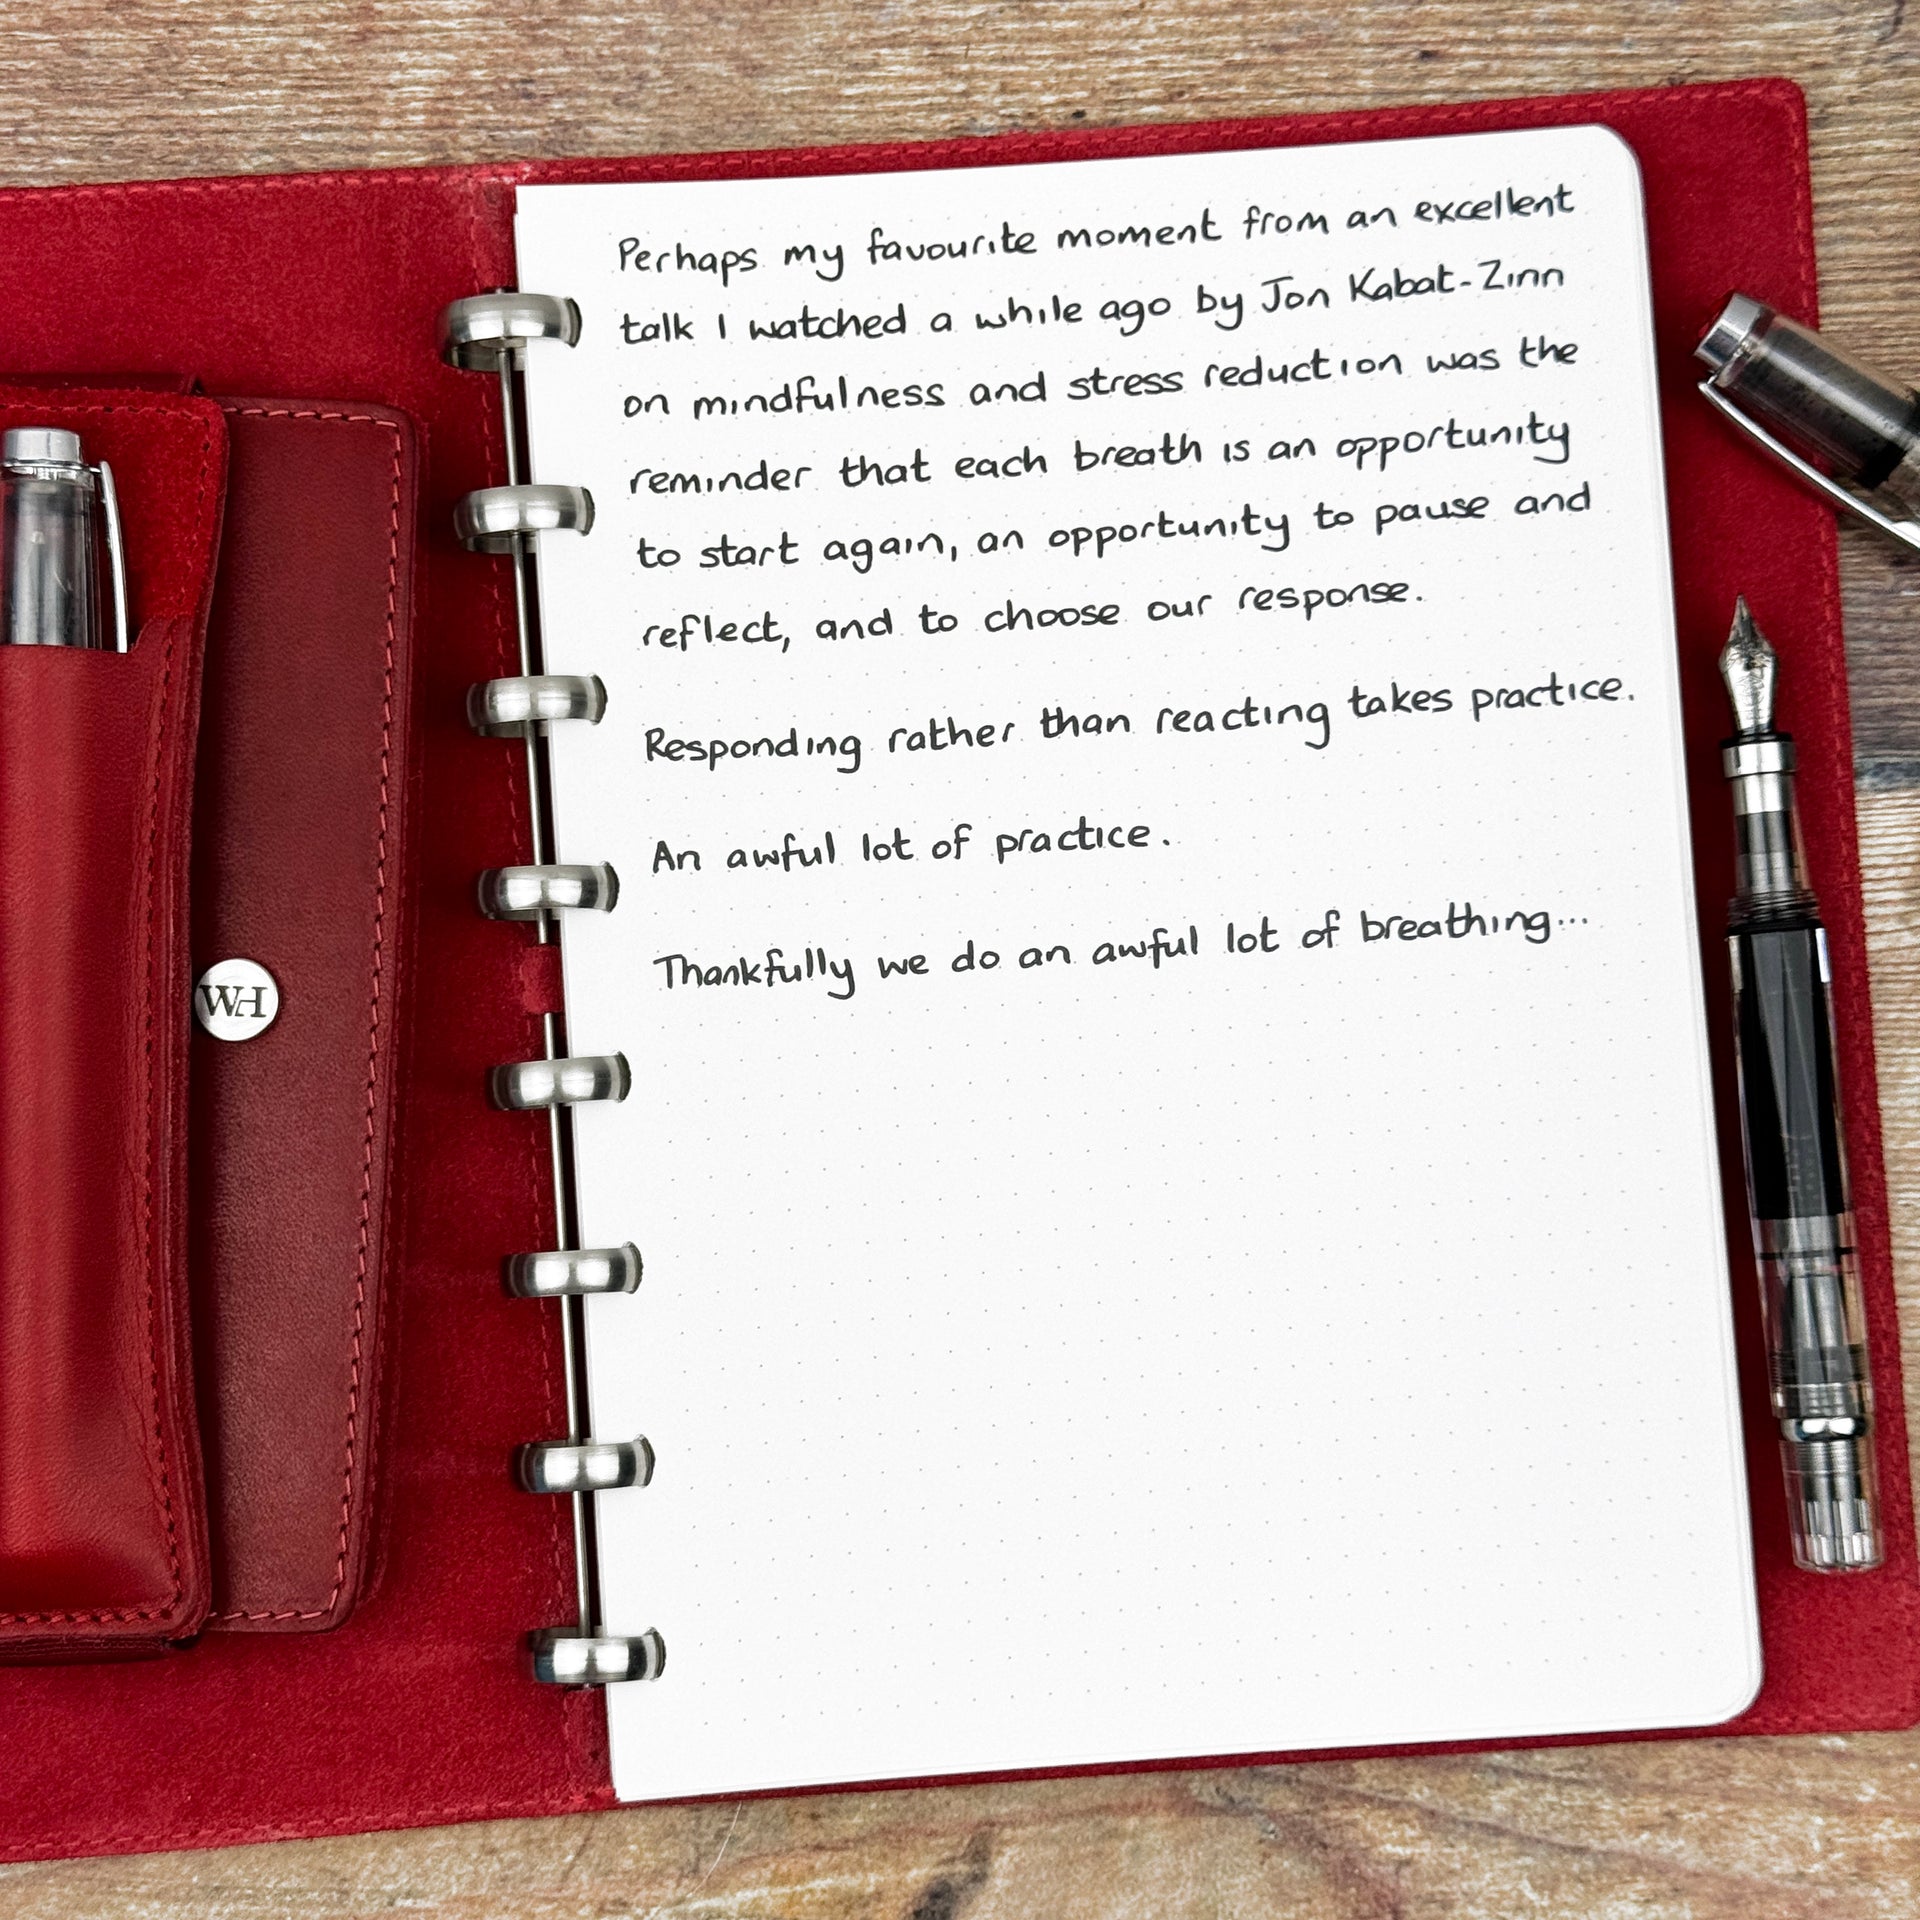 Perhaps my favourite moment from an excellent
talk I watched a while ago by Jon Kabat-Zinn
on mindfulness and stress reduction was the
reminder that each breath is an opportunity
to start again, an opportunity to pause and
reflect, and to choose our response.
Responding rather than reacting takes practice.
An awful lot of practice.
Thankfully we do an awful lot of breathing...
WH